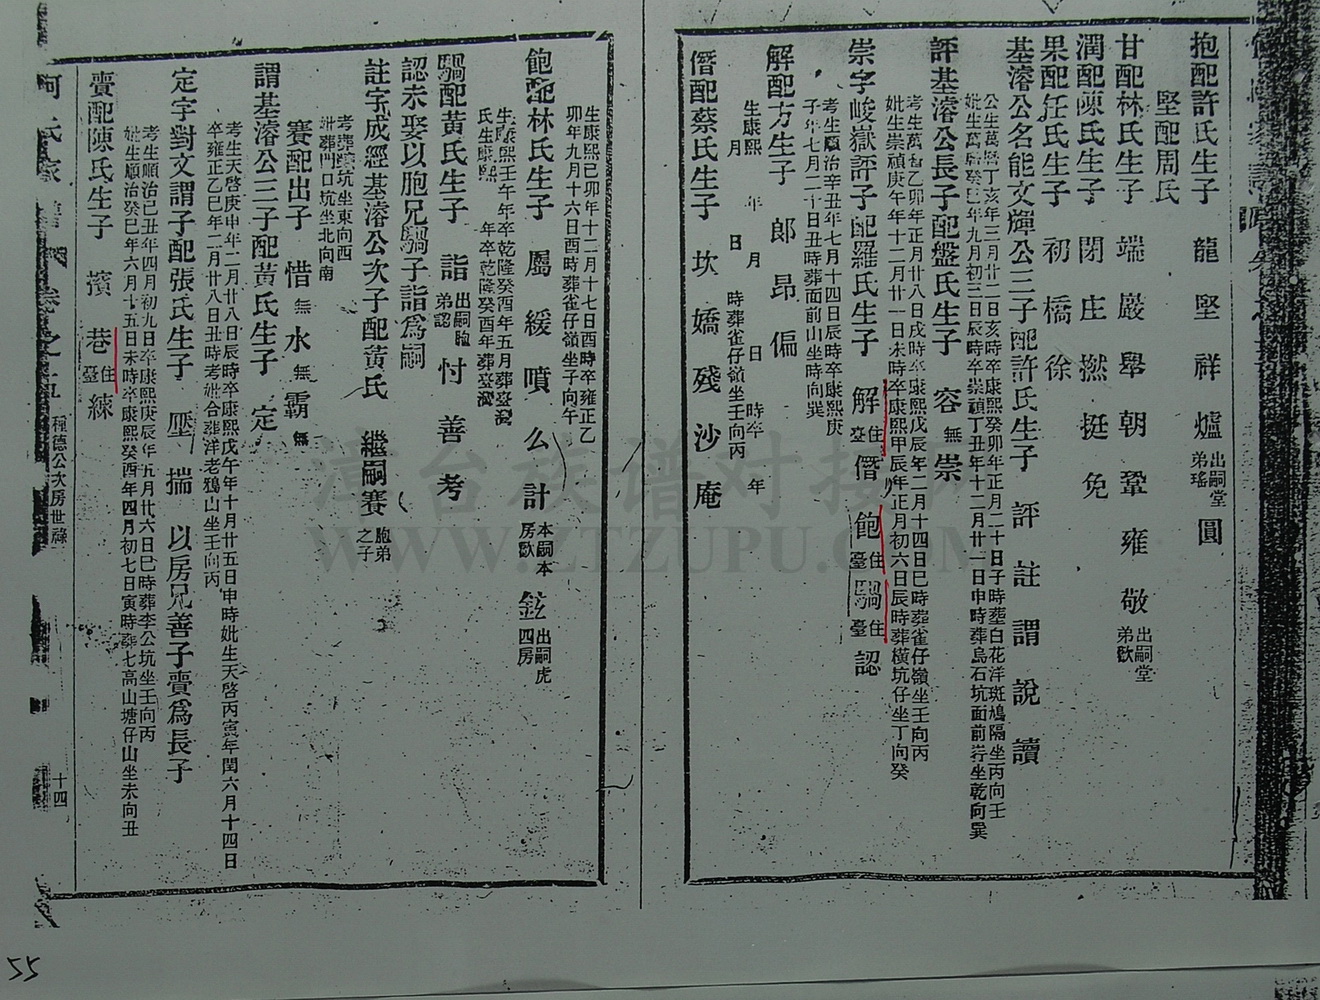 抱配許氏生子 龍 堅 祥 爐 出嗣堂弟瑤 圓
堅配周氏
甘配林氏生子 端 嚴 舉 朝 鞏 雍 敬 出嗣堂弟歡
潤配陳氏生子 閉 庄 撚 挺 免
果配任氏生子 初 橋 徐
基濬公名能文輝公三子配許氏生子 評 註 謂 說 讀
公生萬曆丁亥年三月廿二日亥時卒康熙癸卯年正月二十日子時塟白花洋斑鳩隔坐丙向壬
妣生萬曆癸巳年九月初三日辰時卒崇禎丁丑年十二月廿一日申時葬烏石坑面前坐乾向巽
評基濬公長子配盤氏生子 容 無 崇
考生萬曆乙卯年正月廿八日戌時卒康熙戊辰年二月十四日巳時葬雀仔嶺坐壬向丙
妣生崇禎庚午年十二月廿一日未時卒康熙甲辰年正月初六日辰時葬橫坑仔坐丁向癸
崇字峻嶽評子配羅氏生子 解 住臺 僭 飽 住臺 騧 住臺 認
考生順治辛丑年七月十四日辰時卒康熙庚
子年七月二十日丑時葬面前山坐時向巽
解配方生子 郎 昂 偏
生康熙 年 月 日 時卒 年
月 日 時葬雀仔嶺坐壬向丙
僭配蔡氏生子 坎 嬌 殘 沙 庵
飽配林氏生子 屬 緩 噴 么 計 本嗣本房歡 鉉 出嗣虎四房
生康熙己卯年十二月十七日酉時卒雍正乙
卯年九月十六日酉時葬雀仔嶺坐子向午
生康熙壬午年卒乾隆癸酉年五月葬臺灣
氏生康熙 年卒乾隆癸酉年葬臺灣
騧配黃氏生子 詣 出嗣胞弟認 忖 善 考
認未娶以胞兄騧子詣為嗣
註字成經基濬公次子配黃氏 繼嗣賽 胞弟之子
考葬坑坐東向西
妣葬門口坑坐北向南
賽配出子 惜 無 水 無 霸 無
謂基濬公三子配黃氏生子 定
考生天啓庚申年二月廿八日辰時卒康熙戊午年十月廿五日申時妣生天啓丙寅年閏六月十四日
卒雍正乙巳年二月廿八日丑時考妣合葬洋老鴉山坐壬向丙
定字對文謂子配張氏生子 壓 揣 以房兄善子賣為長子
考生順治己丑年四月初九日卒康熙庚辰年五月廿六日巳時葬李公坑坐壬向丙
妣生順治癸巳年六月十五日未時卒康熙癸酉年四月初七日寅時葬七高山塘仔山坐未向丑
賣配陳氏生子 濱 巷 住臺 練
何氏家譜 卷之五 種德公次房世祿 十四
漳台族谱对接网
WWW.ZTZUPU.COM
55